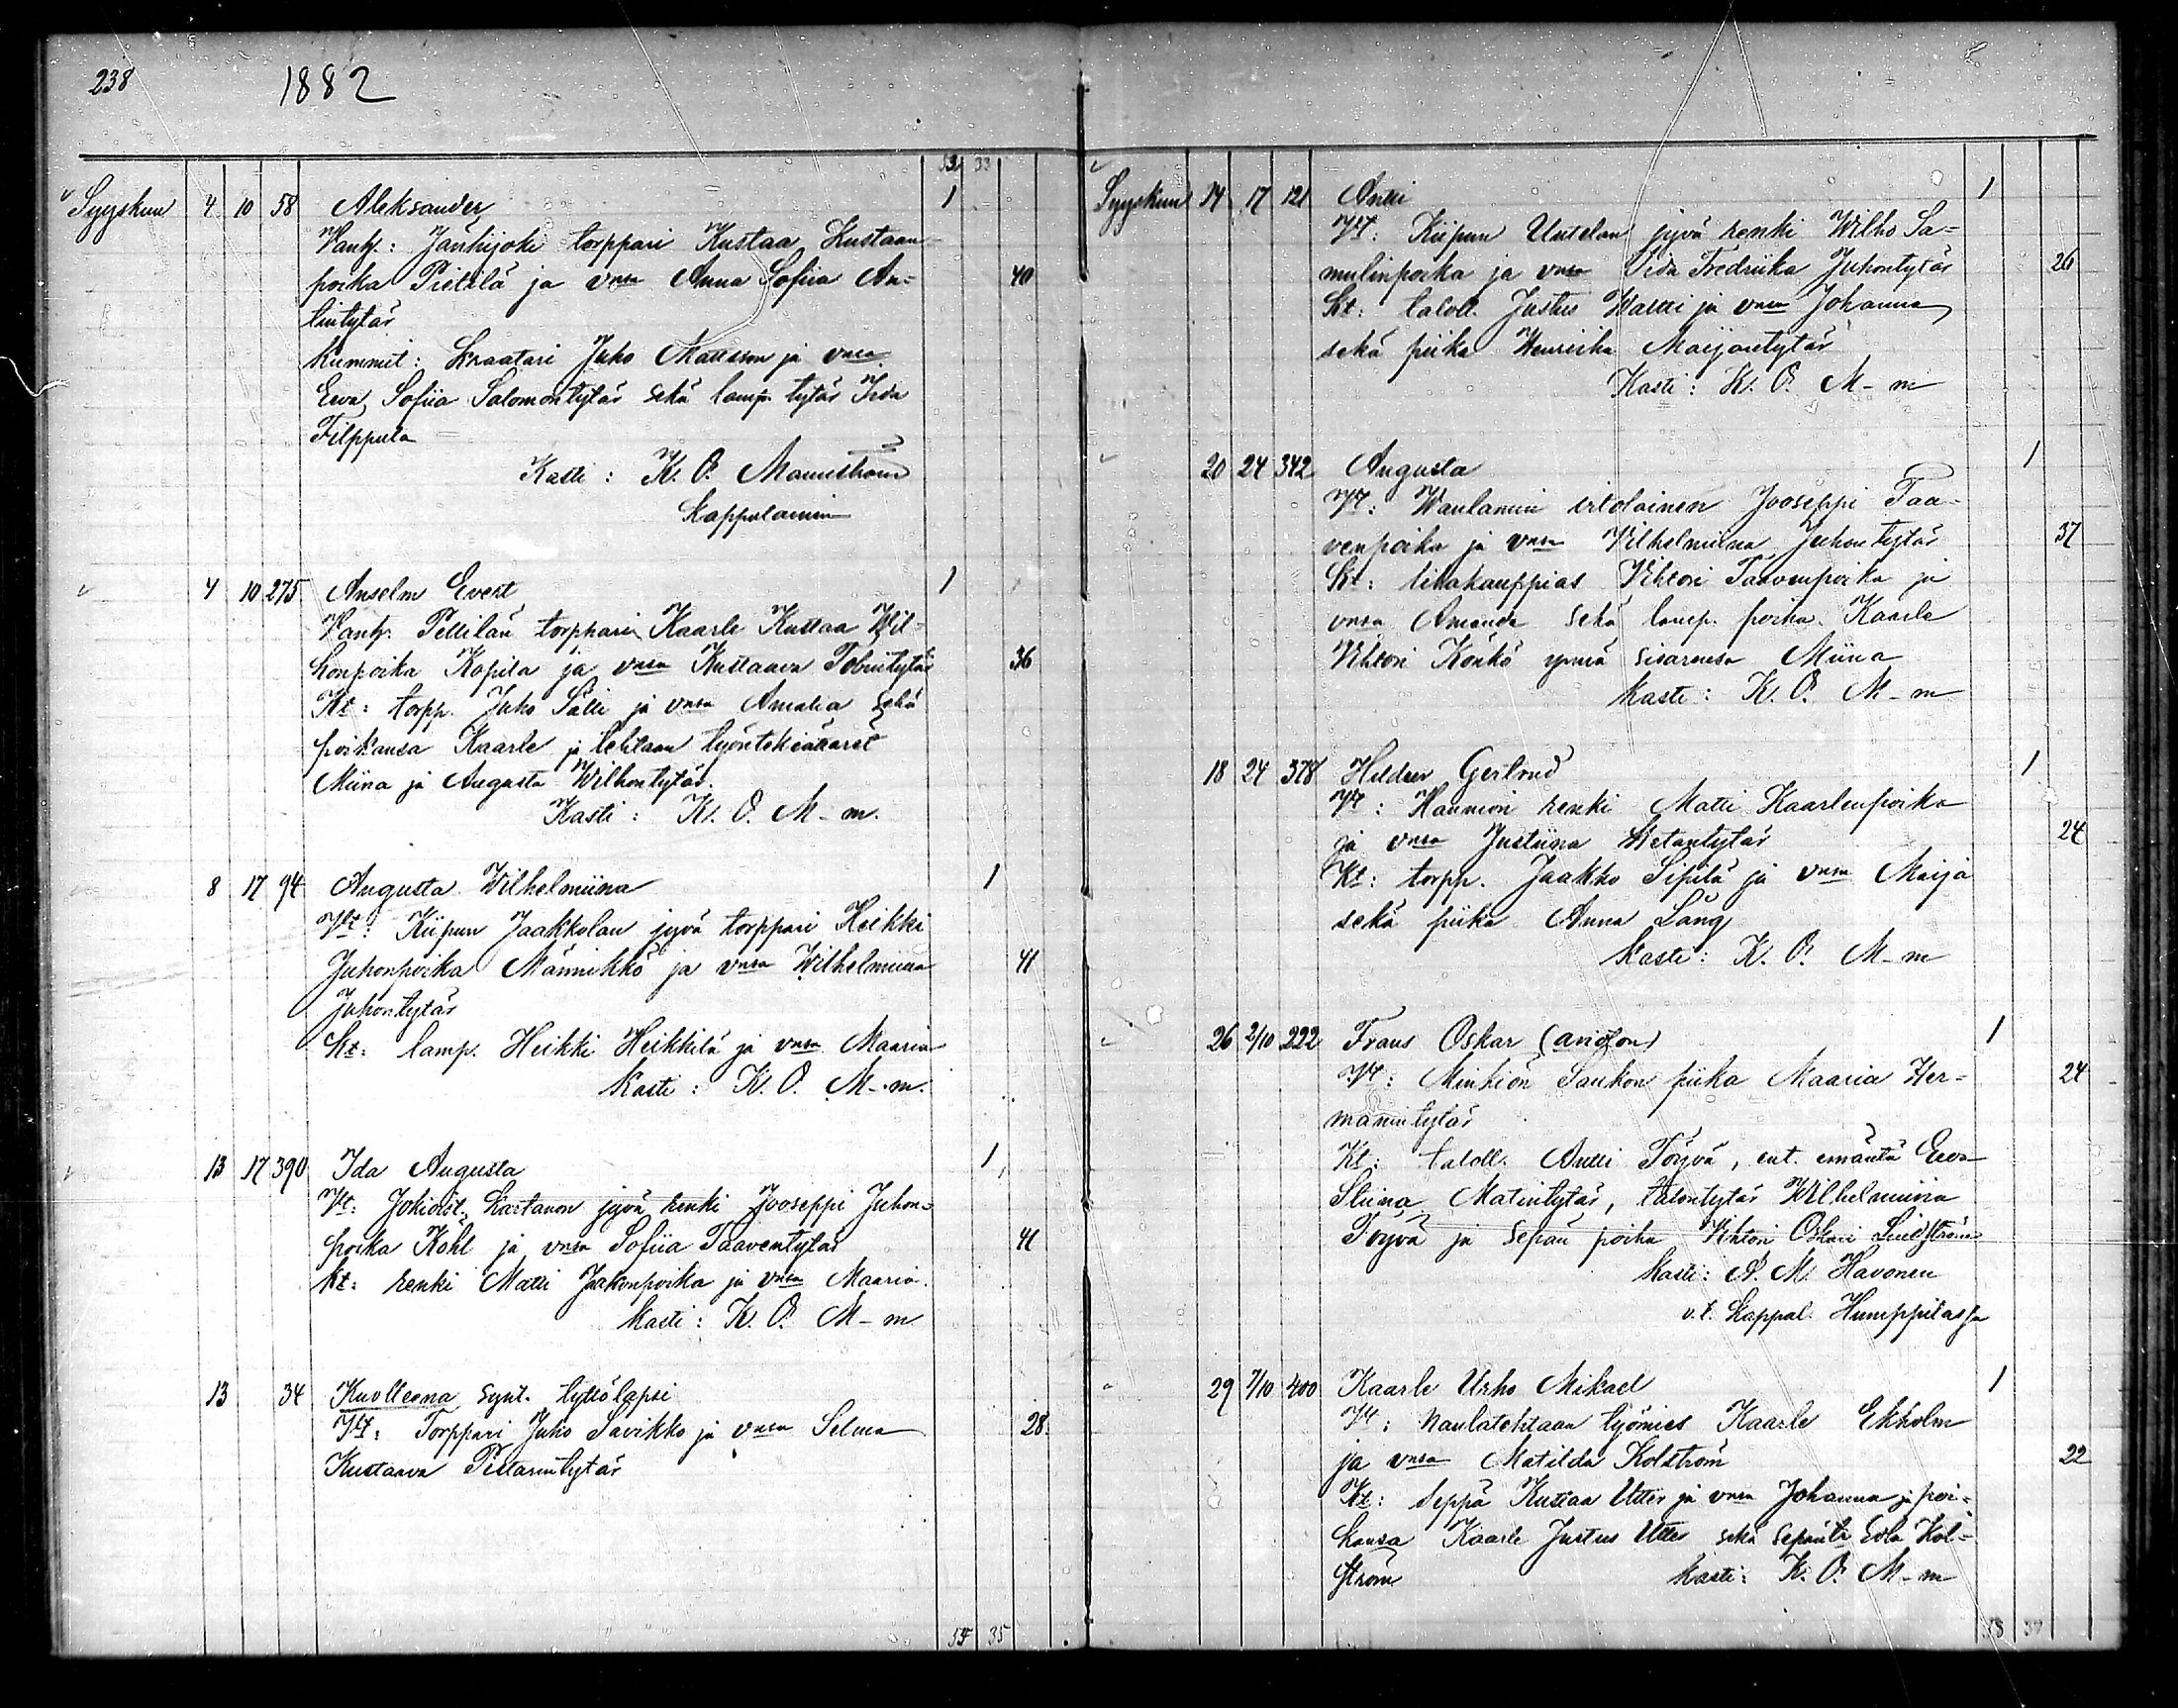 238 1882
53 33
Syyskuu 4 10 58 Aleksander 1
Vanh: Jänhijoki torppari Kustaa Kustaan-
poika Pietilä ja vmsa Anna Sofiia An- 40
tintytär
Kummit: Kraatari Juho Mattsson ja vmsa
Eeva Sofiia Salomontytär sekä lamp. tytär Iida
Filppula
Kasti: K. O. Mannström
Kappalainen
4 10 275 Anselm Evert 1
Vanh. Pellilän torppari Kaarle Kustaa Wil-
honpoika Kopila ja vmsa Kustaava Tobiintytär 36
Kt: torpp. Juho Sälli ja vmsa Amalia sekä
poikansa Kaarle ja tehtaan työntekiättäret
Miina ja Augusta Wilhontytär.
Kasti: K. O. M-m.
8 17 94 Augusta Wilhelmiina 1
Vt: Kiipun Jaakkolan jyvä torppari Heikki
Juhonpoika Männikkö ja vmsa Wilhelmiina 41
Juhontytär
Kt: lamp. Heikki Heikkilä ja vmsa Maaria
Kasti: K. O. M-m.
13 17 390 Ida Augusta 1
Vt: Jokioist. Kartanon jyvä renki Jooseppi Juhon-
poika Kohl ja vmsa Sofiia Taaventytär 41
Kt: renki Matti Jaakonpoika ja vmsa Maaria.
Kasti: K. O. M-m
13 34 Kuolleena synt. tyttölapsi
Vt: Torppari Juho Savikko ja vmsa Selma 28
Kustaava Pietarintytär
35
Syyskuu 14 17 121 Antti 1
Vt: Kiipun Uutelan jyvä renki Wilho Sa-
mulinpoika ja vmsa Iida Fredriika Juhontytär 26
Kt: taloll. Justus Waltti ja vmsa Johanna
sekä piika Henriika Maijantytär
Kasti: K. O. M-m
20 24 342 Augusta 1
Vt: Waulammi irtolainen Jooseppi Taa-
venpoika ja vmsa Vilhelmiina Juhontytär 37
Kt: lihakauppias Vihtori Taavenpoika ja
vmsa Amanda sekä lamp. poika Kaarle
Vihtori Könkö ynnä sisarensa Miina
Kasti: K. O. M-m
18 24 378 Hildur Gertrud 1
Vt: Haunion renki Matti Kaarlenpoika
ja vmsa Justiina Retantytär 24
Kt: torpp. Jaakko Sipilä ja vmsa Maija
sekä piika Anna Lång
Kasti: K. O. M-m
26 2/10 222 Frans Oskar (avioton) 1
Vt: Minkiön Saukon piika Maaria Her- 24
mannintytär
Kt: taloll. Antti Töyvä, ent. emäntä Eeva
Stiina Matintytär, talontytär Wilhelmiina
Töyvä ja sepän poika Vihtori Oskari Lindström
Kasti: A. M. Havonen
v. t. Kappal. Humppilassa
29 7/10 400 Kaarle Urho Mikael 1
Vt: Naulatehtaan työmies Kaarle Ekholm
ja vmsa Matilda Kolström 22
Kt: Seppä Kustaa Utter ja vmsa Johanna ja poi-
kansa Kaarle Justus Utter sekä Kol-
ström Kasti: K. O. M-m